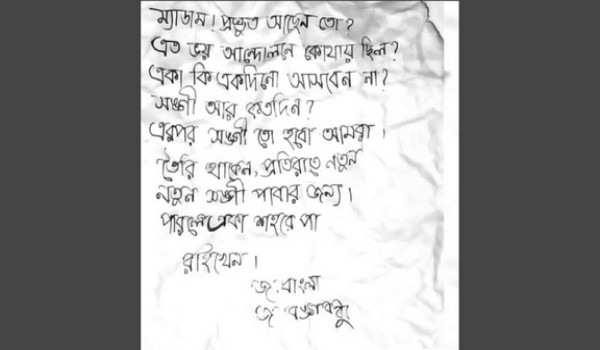 ম্যাডাম! প্রস্তুত আছেন তো?
এত ভয় আন্দোলনে কোথায় ছিল?
একা কি একদিনো আসবেন না?
সঙ্গী আর কতদিন?
এরপর সঙ্গী তো হবো আমরা।
তৈরি থাকেন, প্রতিরাতে নতুন
নতুন সঙ্গী পাবার জন্য।
পারলে একা শহরে পা
রাইখেন।
জ.বাংলা
জ. বঙ্গবন্ধু